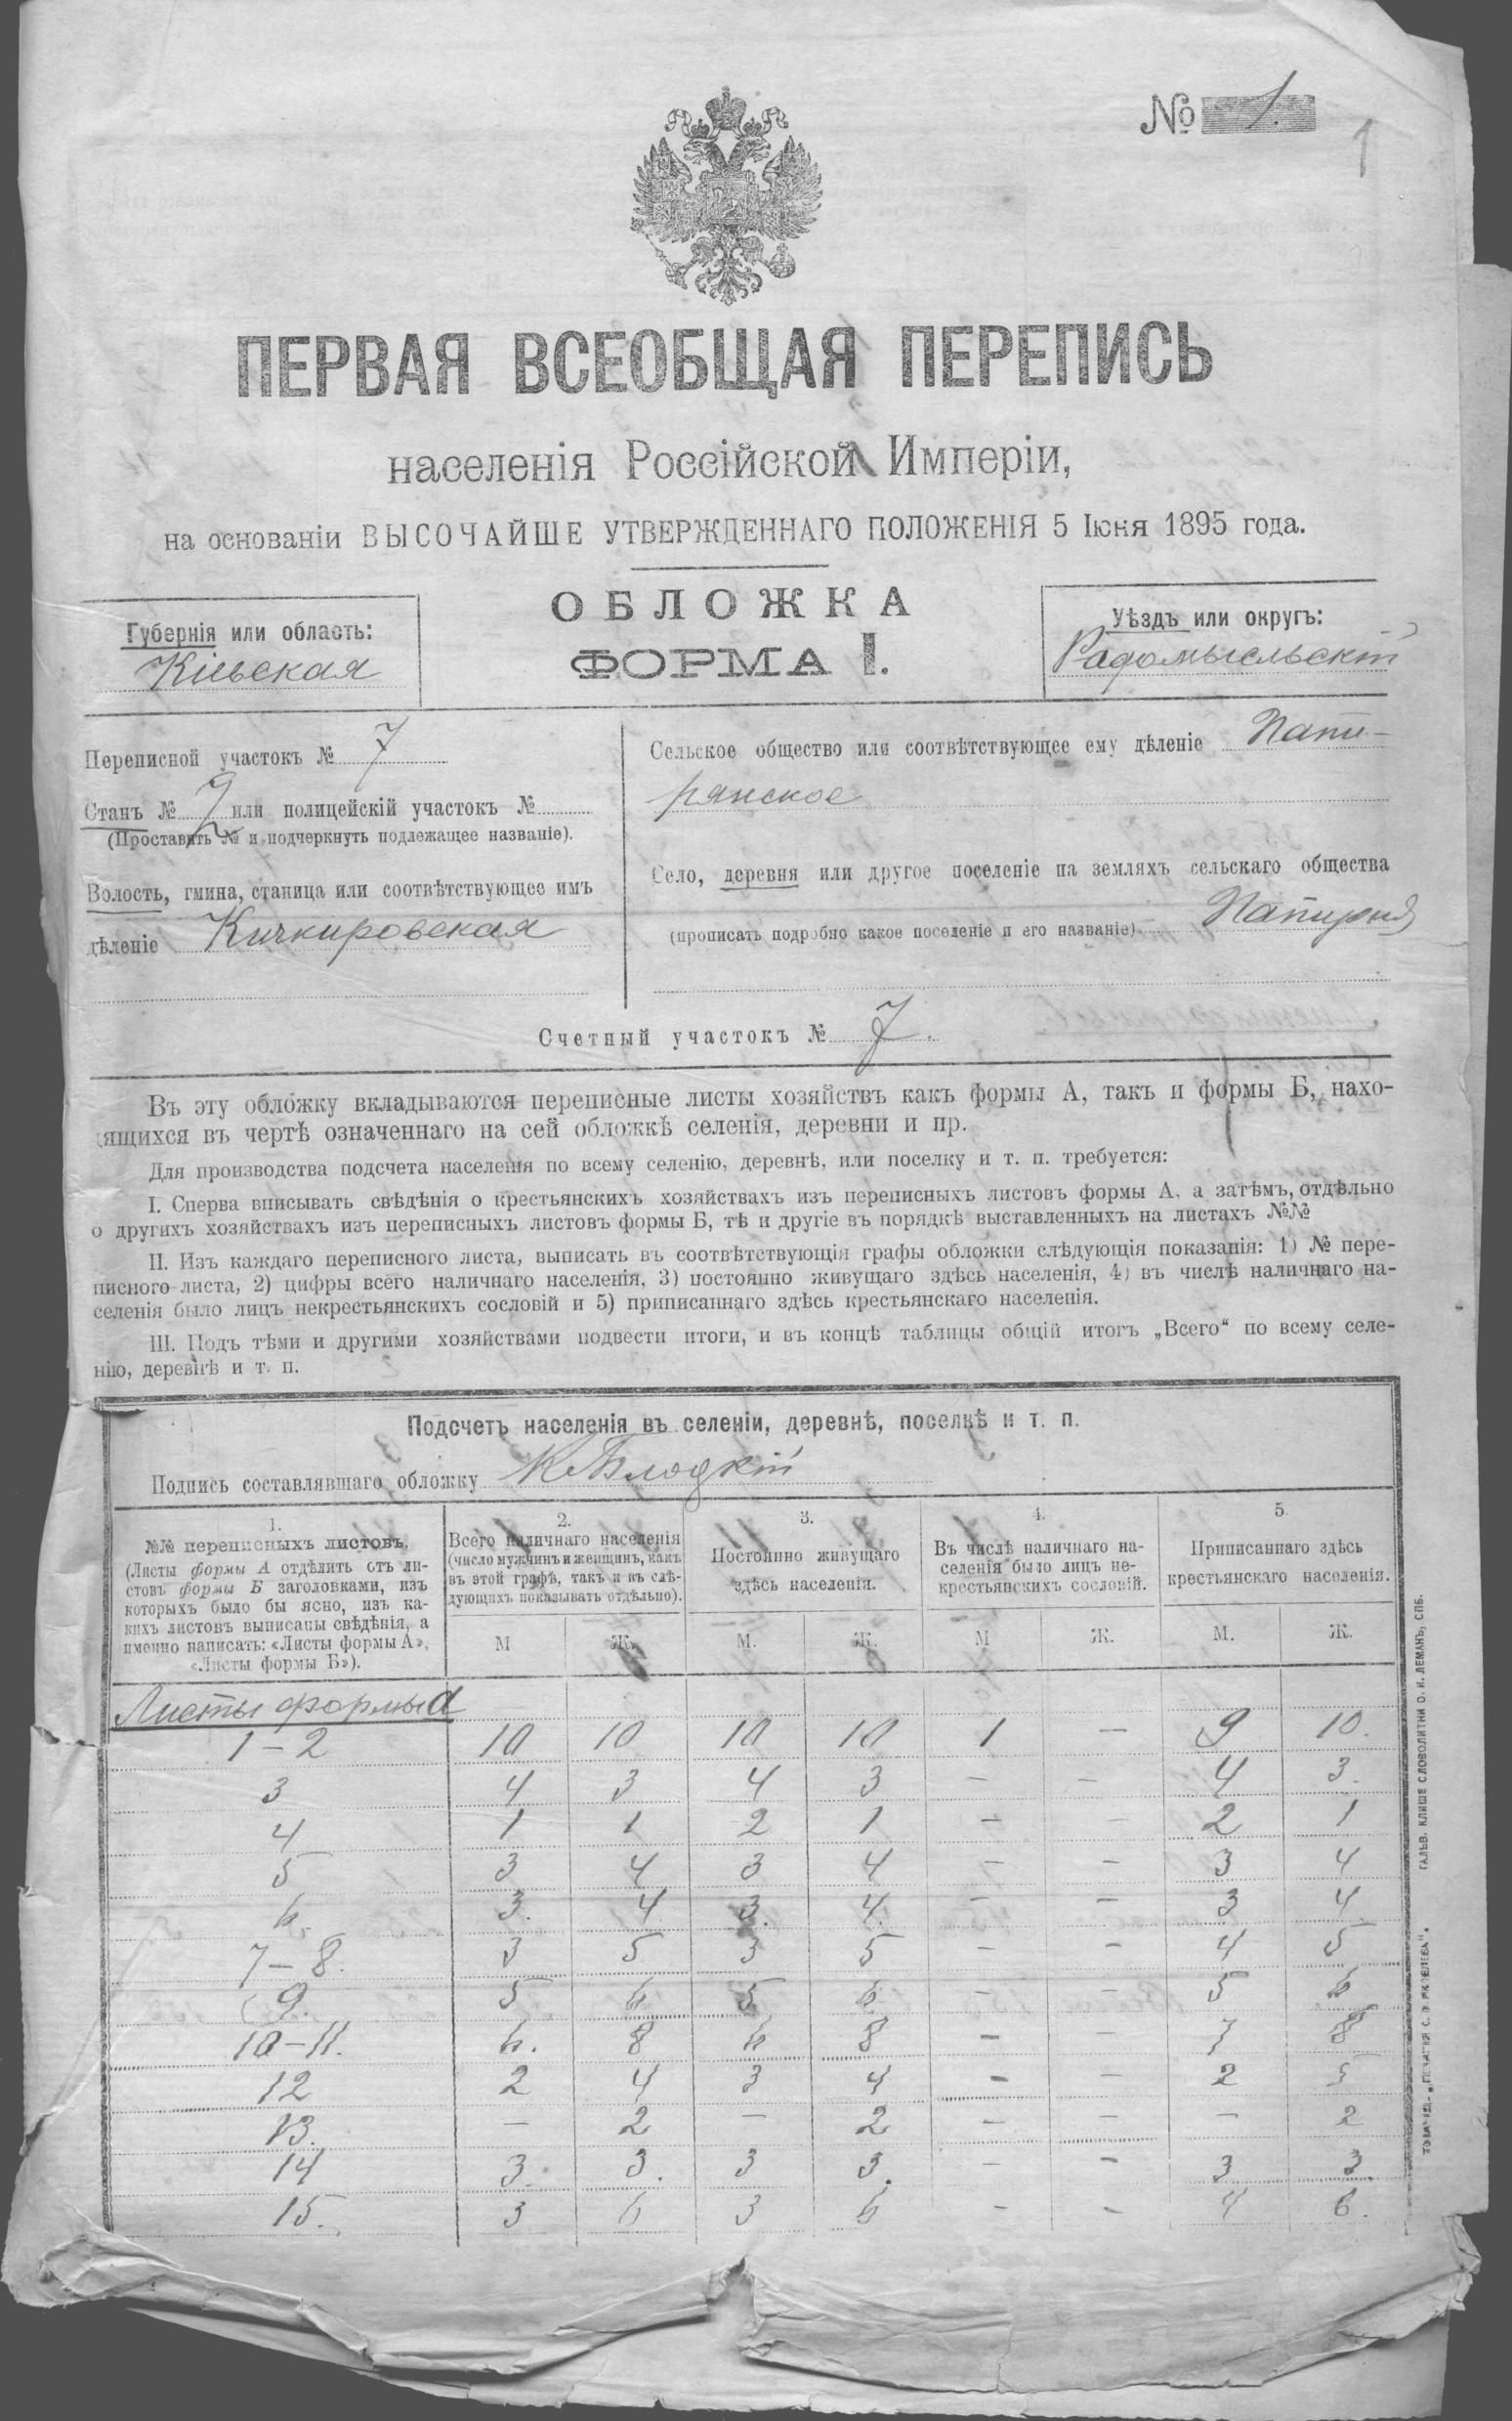 № 1.
1
ПЕРВАЯ ВСЕОБЩАЯ ПЕРЕПИСЬ
населенія Россійской Имперіи,
на основаніи ВЫСОЧАЙШЕ УТВЕРЖДЕННАГО ПОЛОЖЕНІЯ 5 Іюня 1895 года.
ОБЛОЖКА
ФОРМА I.
Губернія или область:
Кіевская
Уѣздъ или округъ:
Радомысльскій
Переписной участокъ № 7
Станъ № 2 или полицейскій участокъ №
(Проставить № и подчеркнуть подлежащее названіе).
Волость, гмина, станица или соотвѣтствующее имъ
дѣленіе Кичкировская
Сельское общество или соотвѣтствующее ему дѣленіе Папи-
рянское
Село, деревня или другое поселеніе на земляхъ сельскаго общества
(прописать подробно какое поселеніе и его названіе) Папирня
Счетный участокъ № 7.
Въ эту обложку вкладываются переписные листы хозяйствъ какъ формы А, такъ и формы Б, нахо-
дящихся въ чертѣ означеннаго на сей обложкѣ селенія, деревни и пр.
Для производства подсчета населенія по всему селенію, деревнѣ, или поселку и т. п. требуется:
I. Сперва вписывать свѣдѣнія о крестьянскихъ хозяйствахъ изъ переписныхъ листовъ формы А, а затѣмъ, отдѣльно
о другихъ хозяйствахъ изъ переписныхъ листовъ формы Б, тѣ и другіе въ порядкѣ выставленныхъ на листахъ №№
II. Изъ каждаго переписного листа, выписать въ соотвѣтствующія графы обложки слѣдующія показанія: 1) № пере-
писного листа, 2) цифры всего наличнаго населенія, 3) постоянно живущаго здѣсь населенія, 4) въ числѣ наличнаго на-
селенія было лицъ некрестьянскихъ сословій и 5) приписаннаго здѣсь крестьянскаго населенія.
III. Подъ тѣми и другими хозяйствами подвести итоги, и въ концѣ таблицы общій итогъ „Всего“ по всему селе-
нію, деревнѣ и т. п.
Подсчетъ населенія въ селеніи, деревнѣ, поселкѣ и т. п.
Подпись составлявшаго обложку
1.
№№ переписныхъ листовъ.
(Листы формы А отдѣлить отъ ли-
стовъ формы Б заголовками, изъ
которыхъ было бы ясно, изъ ка-
кихъ листовъ выписаны свѣдѣнія, а
именно написать: «Листы формы А»,
«Листы формы Б»).
2.
Всего наличнаго населенія
(число мужчинъ и женщинъ, какъ
въ этой графѣ, такъ и въ слѣ-
дующихъ показывать отдѣльно).
3.
Постоянно живущаго
здѣсь населенія.
4.
Въ числѣ наличнаго на-
селенія было лицъ не-
крестьянскихъ сословій.
5.
Приписаннаго здѣсь
крестьянскаго населенія.
М Ж. М. Ж. М Ж. М. Ж.
Листы формы А
1 – 2 10 10 10 10 1 – 9 10.
3 4 3 4 3 – – 4 3.
4 1 1 2 1 – – 2 1
5 3 4 3 4 – – 3 4
6. 3. 4 3. 4. – – 3 4
7 – 8. 3 5 3 5 – – 4 5
9. 5 6 5 6 – – 5 6
10 – 11. 6. 8 6 8 – – 7 8
12 2 4 3 4 – – 2 5
13. – 2 – 2 – – – 2
14 3. 3. 3 3. – – 3 3.
15. 3 6 3 6 – – 4 6.
ГАЛЬВ. КЛИШЕ СЛОВОЛИТНИ О. И. ЛЕМАНЪ, СПБ.